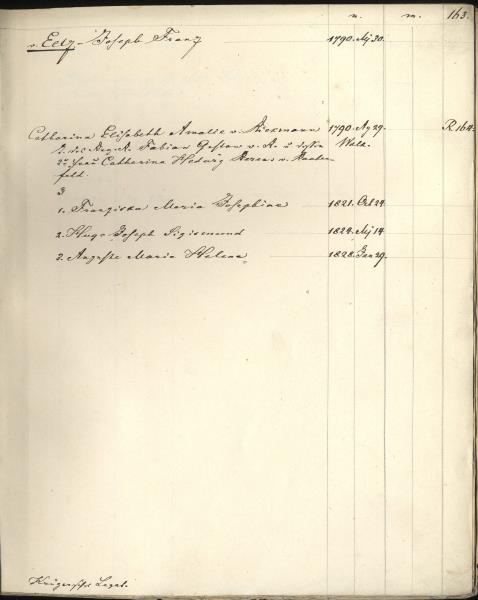 n. m. 163.
v. Eelz Joseph Franz 1790. Mj 30.
Catharina Elisabeth Amalie v. Dieckmann 1790. Ag 29. R. 164.
Fabian Gustav v. D. u Walk.
2r Frau Catharina Hedwig v.
feld.
3
1. Franziska Maria Josephine 1821. Oct 29
2. Hugo Joseph Sigismund 1824. Mj 14
3. Auguste Maria Helene 1828. Jan 29.
Krügersche Legat.